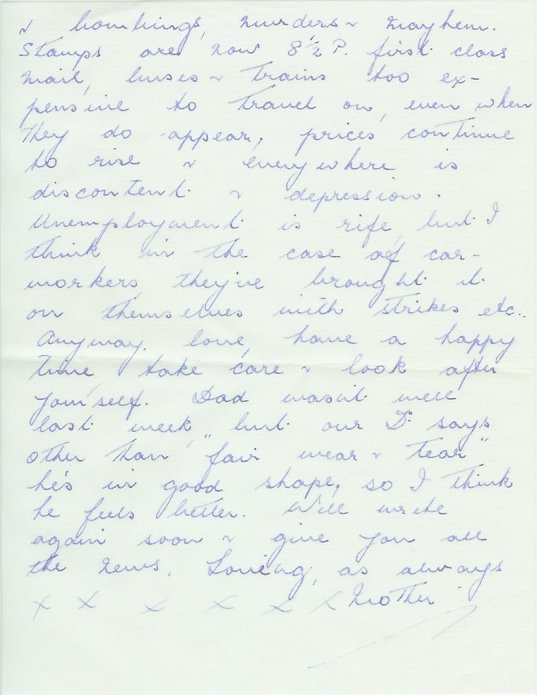 & bombings, murders & mayhem.
Stamps are now 8½ P. first class
mail, buses & trains too ex-
pensive to travel on, even when
they do appear, prices continue
to rise & everywhere is
discontent & depression.
Unemployment is rife, but I
think in the case of car-
workers, they've brought it
on themselves with strikes etc..
Anyway, love, have a happy
time take care & look after
yourself. Dad wasn't well
last week, but our Dr says
other than "fair wear & tear"
he's in good shape, so I think
he feels better. Will write
again soon & give you all
the news. Loving, as always
x x x x x x Mother